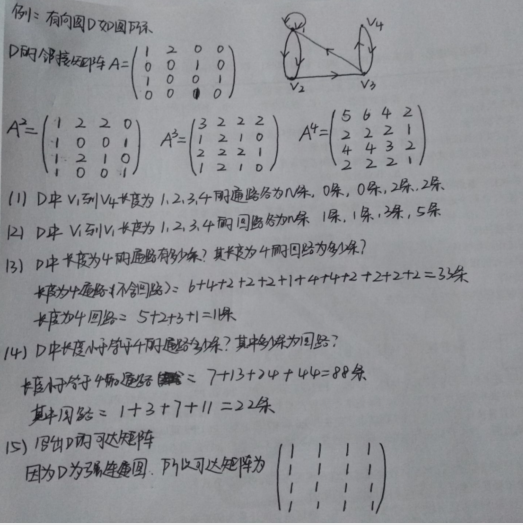 例: 有向图D如图所示
V₁ V₄ V₂ V₃
D的邻接矩阵A=
1 2 0 0
0 0 1 0
1 0 0 1
0 0 1 0
A²=
1 2 2 0
1 0 0 1
1 2 1 0
1 0 0 1
A³=
3 2 2 2
1 2 1 0
2 2 2 1
1 2 1 0
A⁴=
5 6 4 2
2 2 2 1
4 4 3 2
2 2 2 1
(1) D中V₁到V₄长度为1,2,3,4的通路各为N条, 0条, 0条, 2条, 2条
(2) D中V₁到V₁长度为1,2,3,4的回路各为N条 1条, 1条, 3条, 5条
(3) D中长度为4的通路有多少条? 其长度为4的回路为多少条?
长度为4通路(不含回路)= 6+4+2+2+2+1+4+4+2+2+2+2=33条
长度为4回路= 5+2+3+1=11条
(4) D中长度小于等于4的通路多少条? 其中多少条为回路?
长度小于等于4的通路 = 7+13+24+44=88条
其中回路= 1+3+7+11=22条
(5) 写出D的可达矩阵
因为D为强连通图, 所以可达矩阵为
1 1 1 1
1 1 1 1
1 1 1 1
1 1 1 1